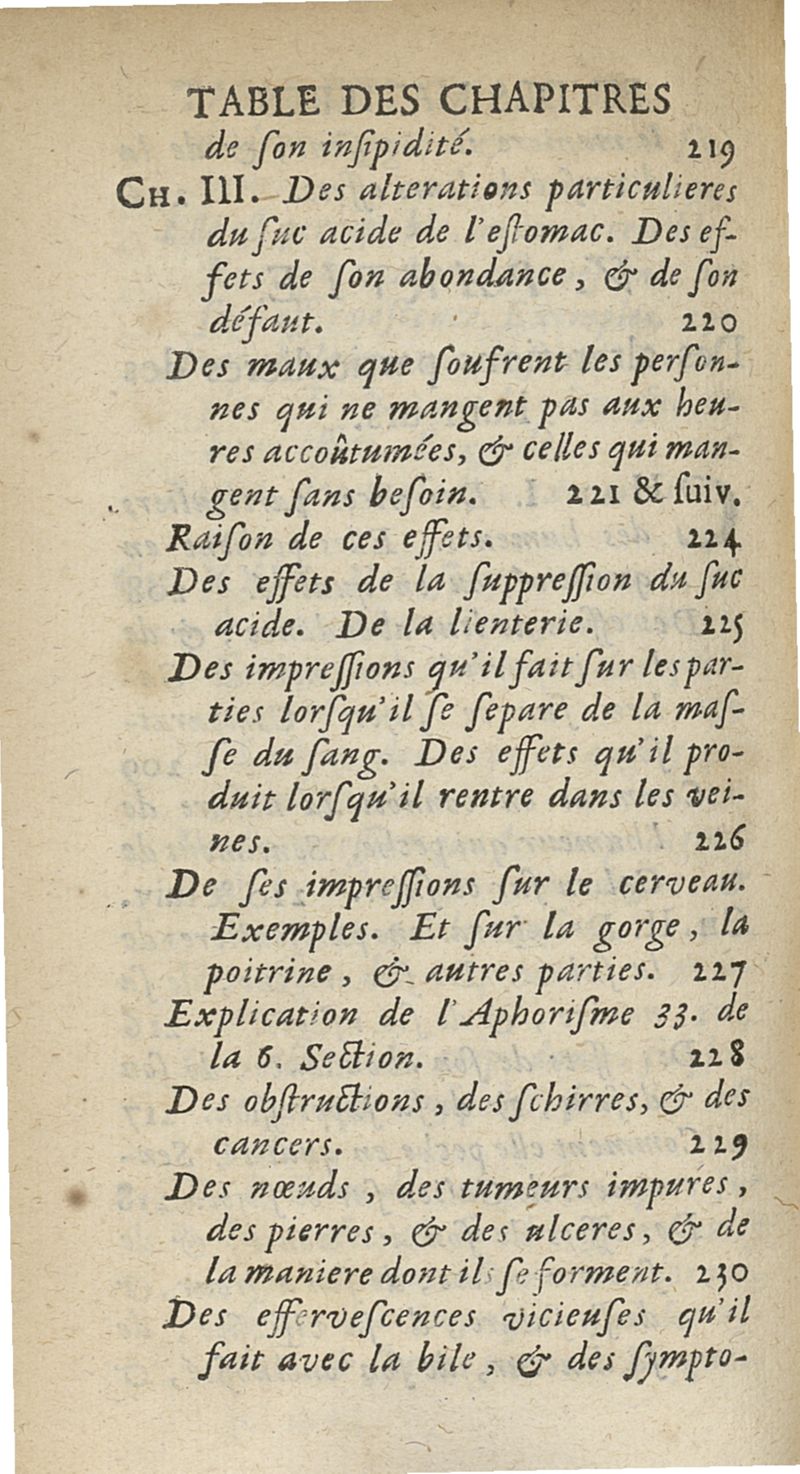 TABLE DES CHAPITRES
de ſon inſipidité. 219
CH. III. Des alterations particulieres
du ſuc acide de l'eſtomac. Des ef-
fets de ſon abondance, & de ſon
défaut. 220
Des maux que ſoufrent les perſon-
nes qui ne mangent pas aux heu-
res accoûtumées, & celles qui man-
gent ſans beſoin. 221 & ſuiv.
Raiſon de ces effets. 224
Des effets de la ſuppreſſion du ſuc
acide. De la lienterie. 225
Des impreſſions qu'il fait ſur les par-
ties lorſqu'il ſe ſepare de la maſ-
ſe du ſang. Des effets qu'il pro-
duit lorſqu'il rentre dans les vei-
nes. 226
De ſes impreſſions ſur le cerveau.
Exemples. Et ſur la gorge, la
poitrine, & autres parties. 227
Explication de l'Aphoriſme 33. de
la 6. Section. 228
Des obſtructions, des ſchirres, & des
cancers. 229
Des nœuds, des tumeurs impures,
des pierres, & des ulceres, & de
la maniere dont ils ſe forment. 230
Des efferveſcences vicieuſes qu'il
fait avec la bile, & des ſympto-